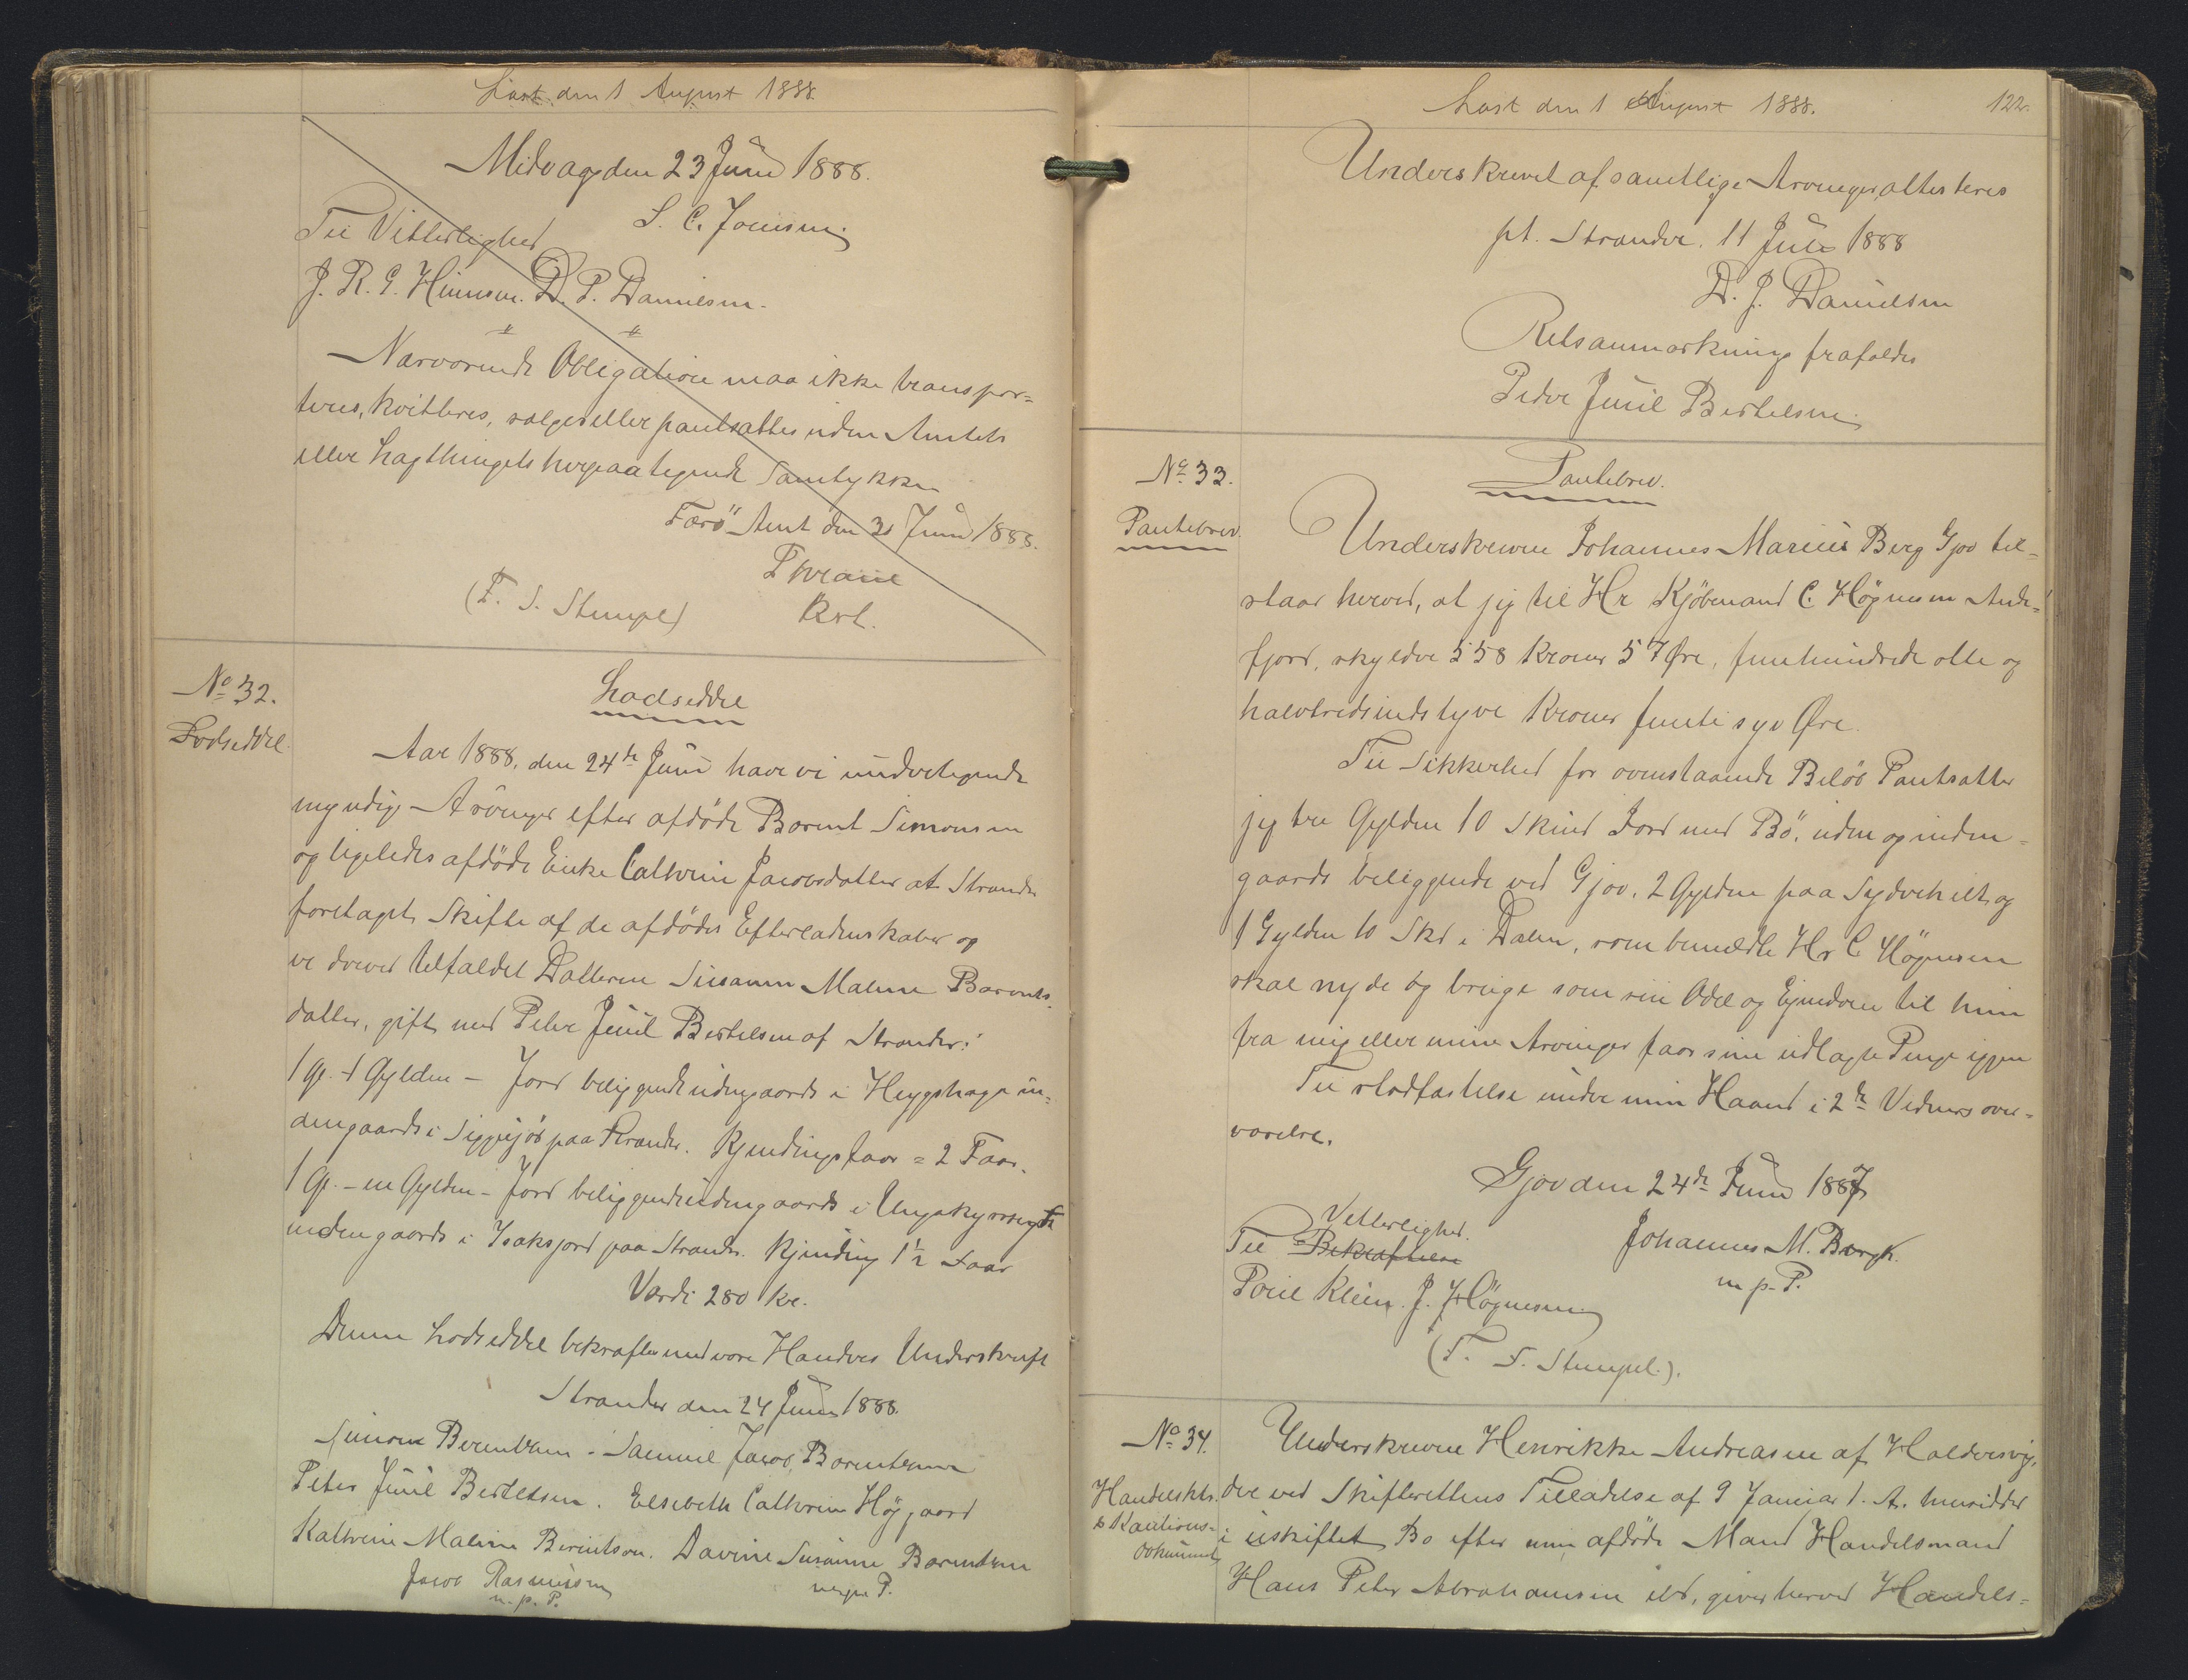 Læst den 1 August 1888.
Midvaag den 23 Juni 1888.
Til Vitterlighed S. C. Joensen
J. R. E. D. P. Danielsen.
Nærværende Obligation maa ikke transpor=
teres, kvitteres, sælges eller pantsættes uden Amtets
eller Lagthingets herpaa tegnede Samtykke
Færö Amt den Juni 1888.
(F. S. Stempel) Kst.
No 32.
Lodseddel.
Lodseddel
Aar 1888, den 24de Juni have vi undertegnede
myndige Arvinger efter afdöde Barent Simonsen
og ligeledes afdöde Enke Cathrine Jacobsdatter at Strender
foretaget Skifte af de afdödes Efterladenskaber og
er derved tilfaldet Datteren Susanne Maline Barents=
datter, gift med Peter Juul Bertelsen af Strender:
1 Gl. 1 Gylden – Jord beliggende udengaards i Heygshage in=
dengaards i paa Strender. Kjendingsfaar = 2 Faar.
1 Gl. – en Gylden – Jord beliggende udengaards i
indengaards i Isaksjord paa Strender. Kjending 1½ Faar
Værdi 280 Kr.
Denne Lodseddel bekræftes med vore Hænders Underskrift
Strender den 24 Juni 1888.
Simon Berentsen. Samuel Jacob Barentsen
Peter Juul Bertelsen. Elsebeth Cathrine Höjgaard
Kathrine Maline Berintsen. Davine Susanne Barentsen
Jacob Rasmussen
m. p. P.
Læst den 1 August 1888.
122.
Underskrevet af samtlige Arvinger, attesteres
pt. Strender. 11 Juli 1888
D. J. Danielsen
Retsanmærkning frafaldes
Peder Juul Bertelsen
No 33.
Pantebrev.
Pantebrev.
Underskrevne Johannes Marius Berg Gjov til=
staar herved, at jeg til Hr Kjöbmand C. Högnesen Ande=
fjord, skylder 558 Kroner 57 Øre, femhundrede otte og
halvtredsindstyve Kroner femti syv Øre.
Til Sikkerhed for ovenstaaende Beløb Pantsætter
jeg tre Gylden 10 Skind Jord med Bö, uden og inden=
gaards beliggende ved Gjov. 2 Gylden paa og
1 Gylden 10 Skd i Dalen, som bemeldte Hr C Högnesen
skal nyde og bruge som sin Odel og Ejendom til han
fra mig eller mine Arvinger faar sine udlagte Penge igjen
Til stadfæstelse under min Haand i 2de Vidners over=
værelse.
Gjov den 24de Juni 1887
Vitterlighed.
Til Bekræftelse Johannes M. Bergh.
m. p. P.
Poul Klein. J. Högnesen
(F. S. Stempel.).
No 34.
Handelskts.
& Kautions=
dokument
Underskrevne Henrikke Andreasen af Haldersvig,
der ved Skifterettens Tilladelse af 9 Januar d. A. hensidder
i uskiftet Bo efter min afdöde Mand Handelsmand
Hans Peter Abrahamsen ibd, giver herved Handels=